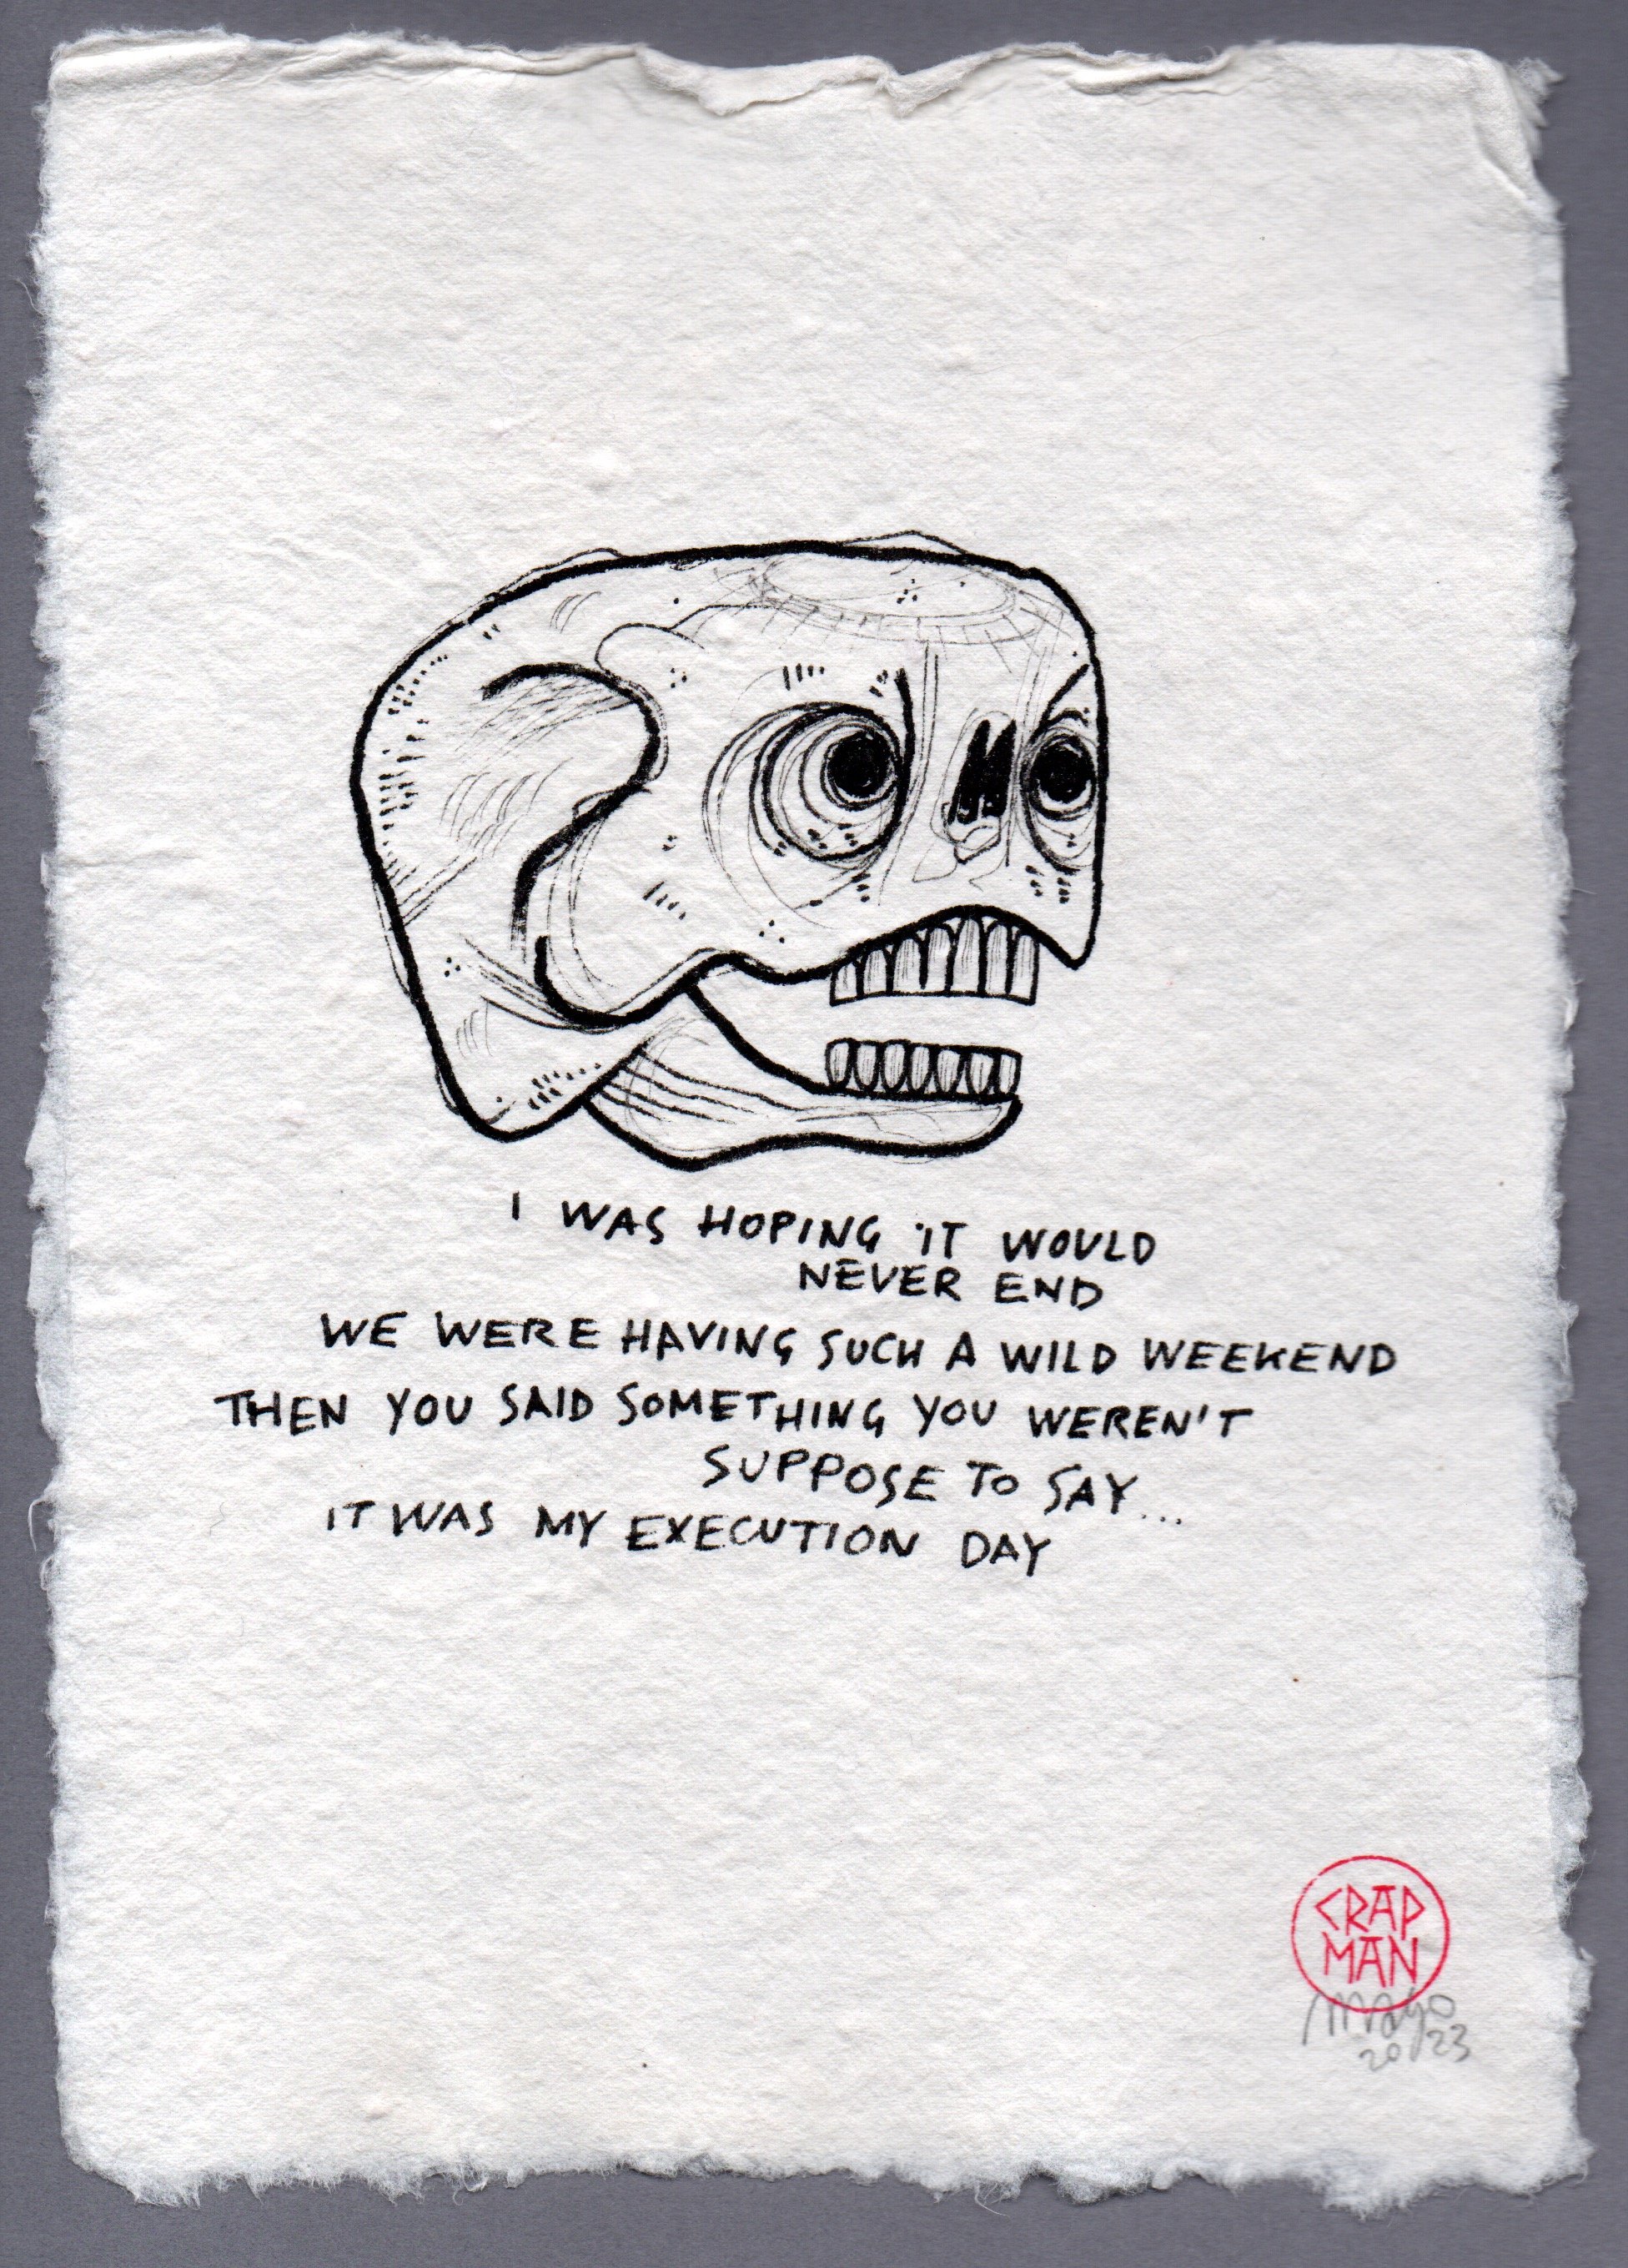 I WAS HOPING IT WOULD
NEVER END
WE WERE HAVING SUCH A WILD WEEKEND
THEN YOU SAID SOMETHING YOU WEREN'T
SUPPOSE TO SAY...
IT WAS MY EXECUTION DAY
CRAP
MAN
mayo
2023